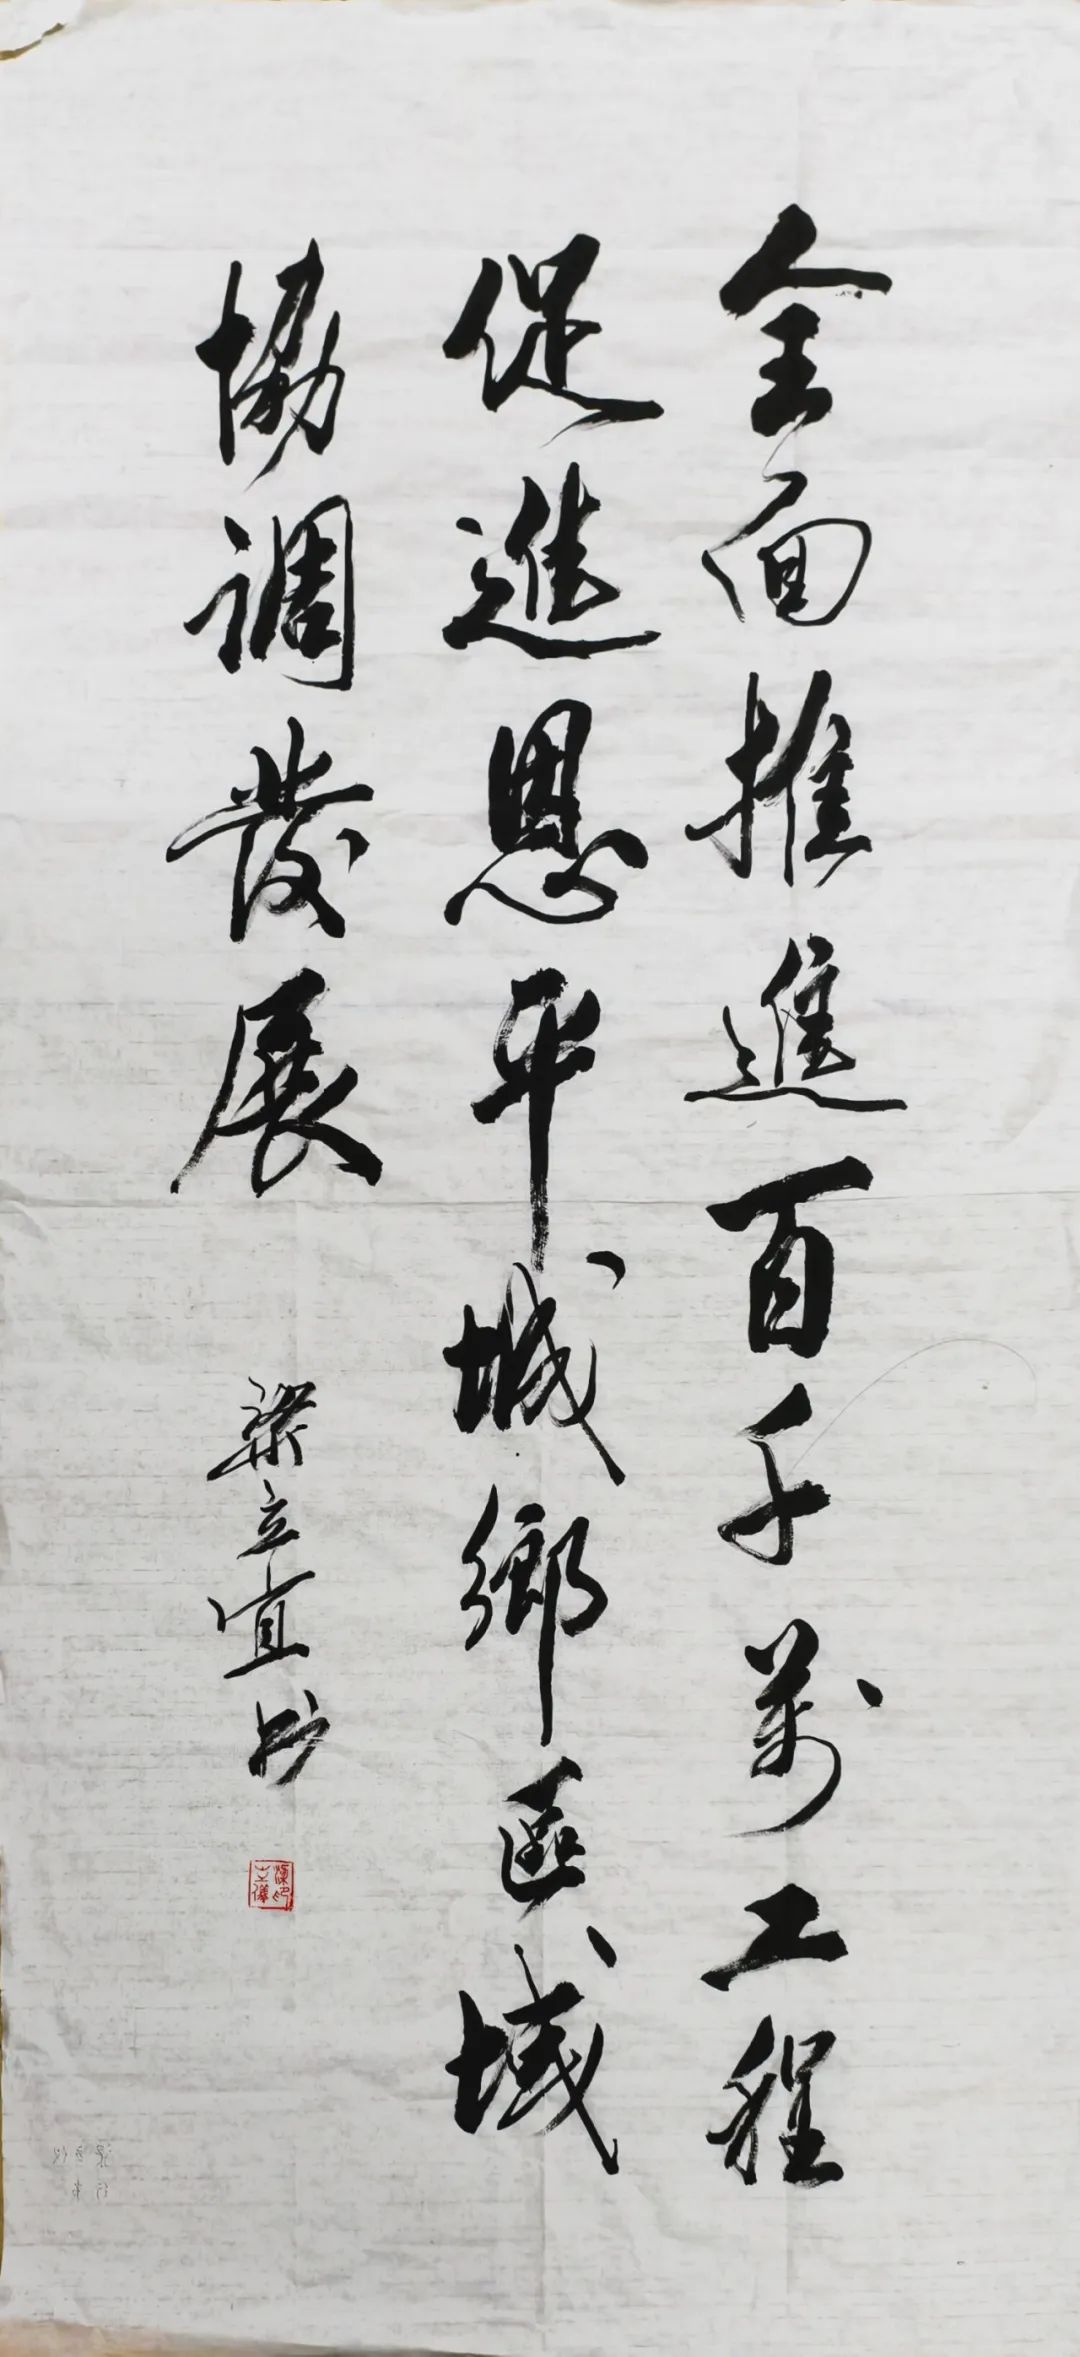 全面推進百千萬工程
促進恩平城鄉區域
協調發展
梁立宜书